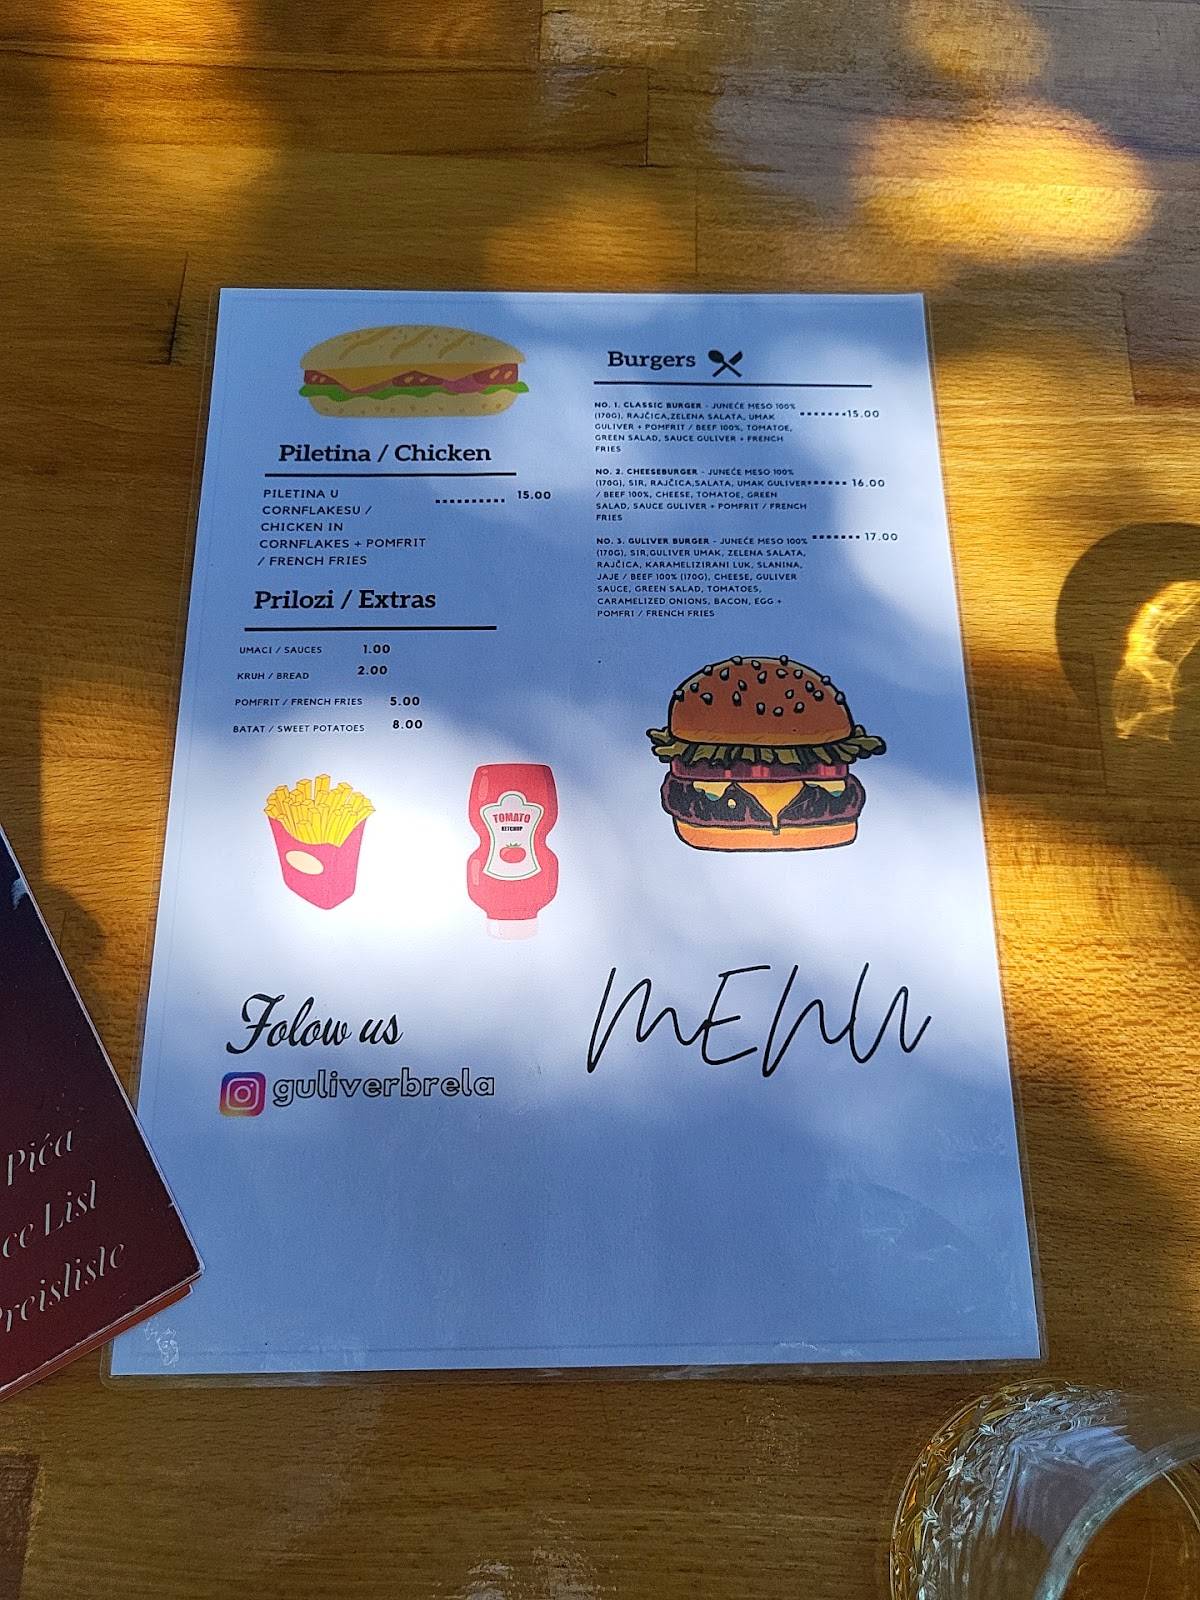 Piletina / Chicken
PILETINA U ......... 15.00
CORNFLAKESU /
CHICKEN IN
CORNFLAKES + POMFRIT
/ FRENCH FRIES
Prilozi / Extras
UMACI / SAUCES 1.00
KRUH / BREAD 2.00
POMFRIT / FRENCH FRIES 5.00
BATAT / SWEET POTATOES 8.00
TOMATO
KETCHUP
Folow us
guliverbrela
Burgers
NO. 1. CLASSIC BURGER - JUNEĆE MESO 100%
(170G), RAJČICA,ZELENA SALATA, UMAK .......15.00
GULIVER + POMFRIT / BEEF 100%, TOMATOE,
GREEN SALAD, SAUCE GULIVER + FRENCH
FRIES
NO. 2. CHEESEBURGER - JUNEĆE MESO 100%
(170G), SIR, RAJČICA,SALATA, UMAK GULIVER...... 16.00
/ BEEF 100%, CHEESE, TOMATOE, GREEN
SALAD, SAUCE GULIVER + POMFRIT / FRENCH
FRIES
NO. 3. GULIVER BURGER - JUNEĆE MESO 100% ....... 17.00
(170G), SIR,GULIVER UMAK, ZELENA SALATA,
RAJČICA, KARAMELIZIRANI LUK, SLANINA,
JAJE / BEEF 100% (170G), CHEESE, GULIVER
SAUCE, GREEN SALAD, TOMATOES,
CARAMELIZED ONIONS, BACON, EGG +
POMFRI / FRENCH FRIES
MENU
Pića
ce List
Preisliste